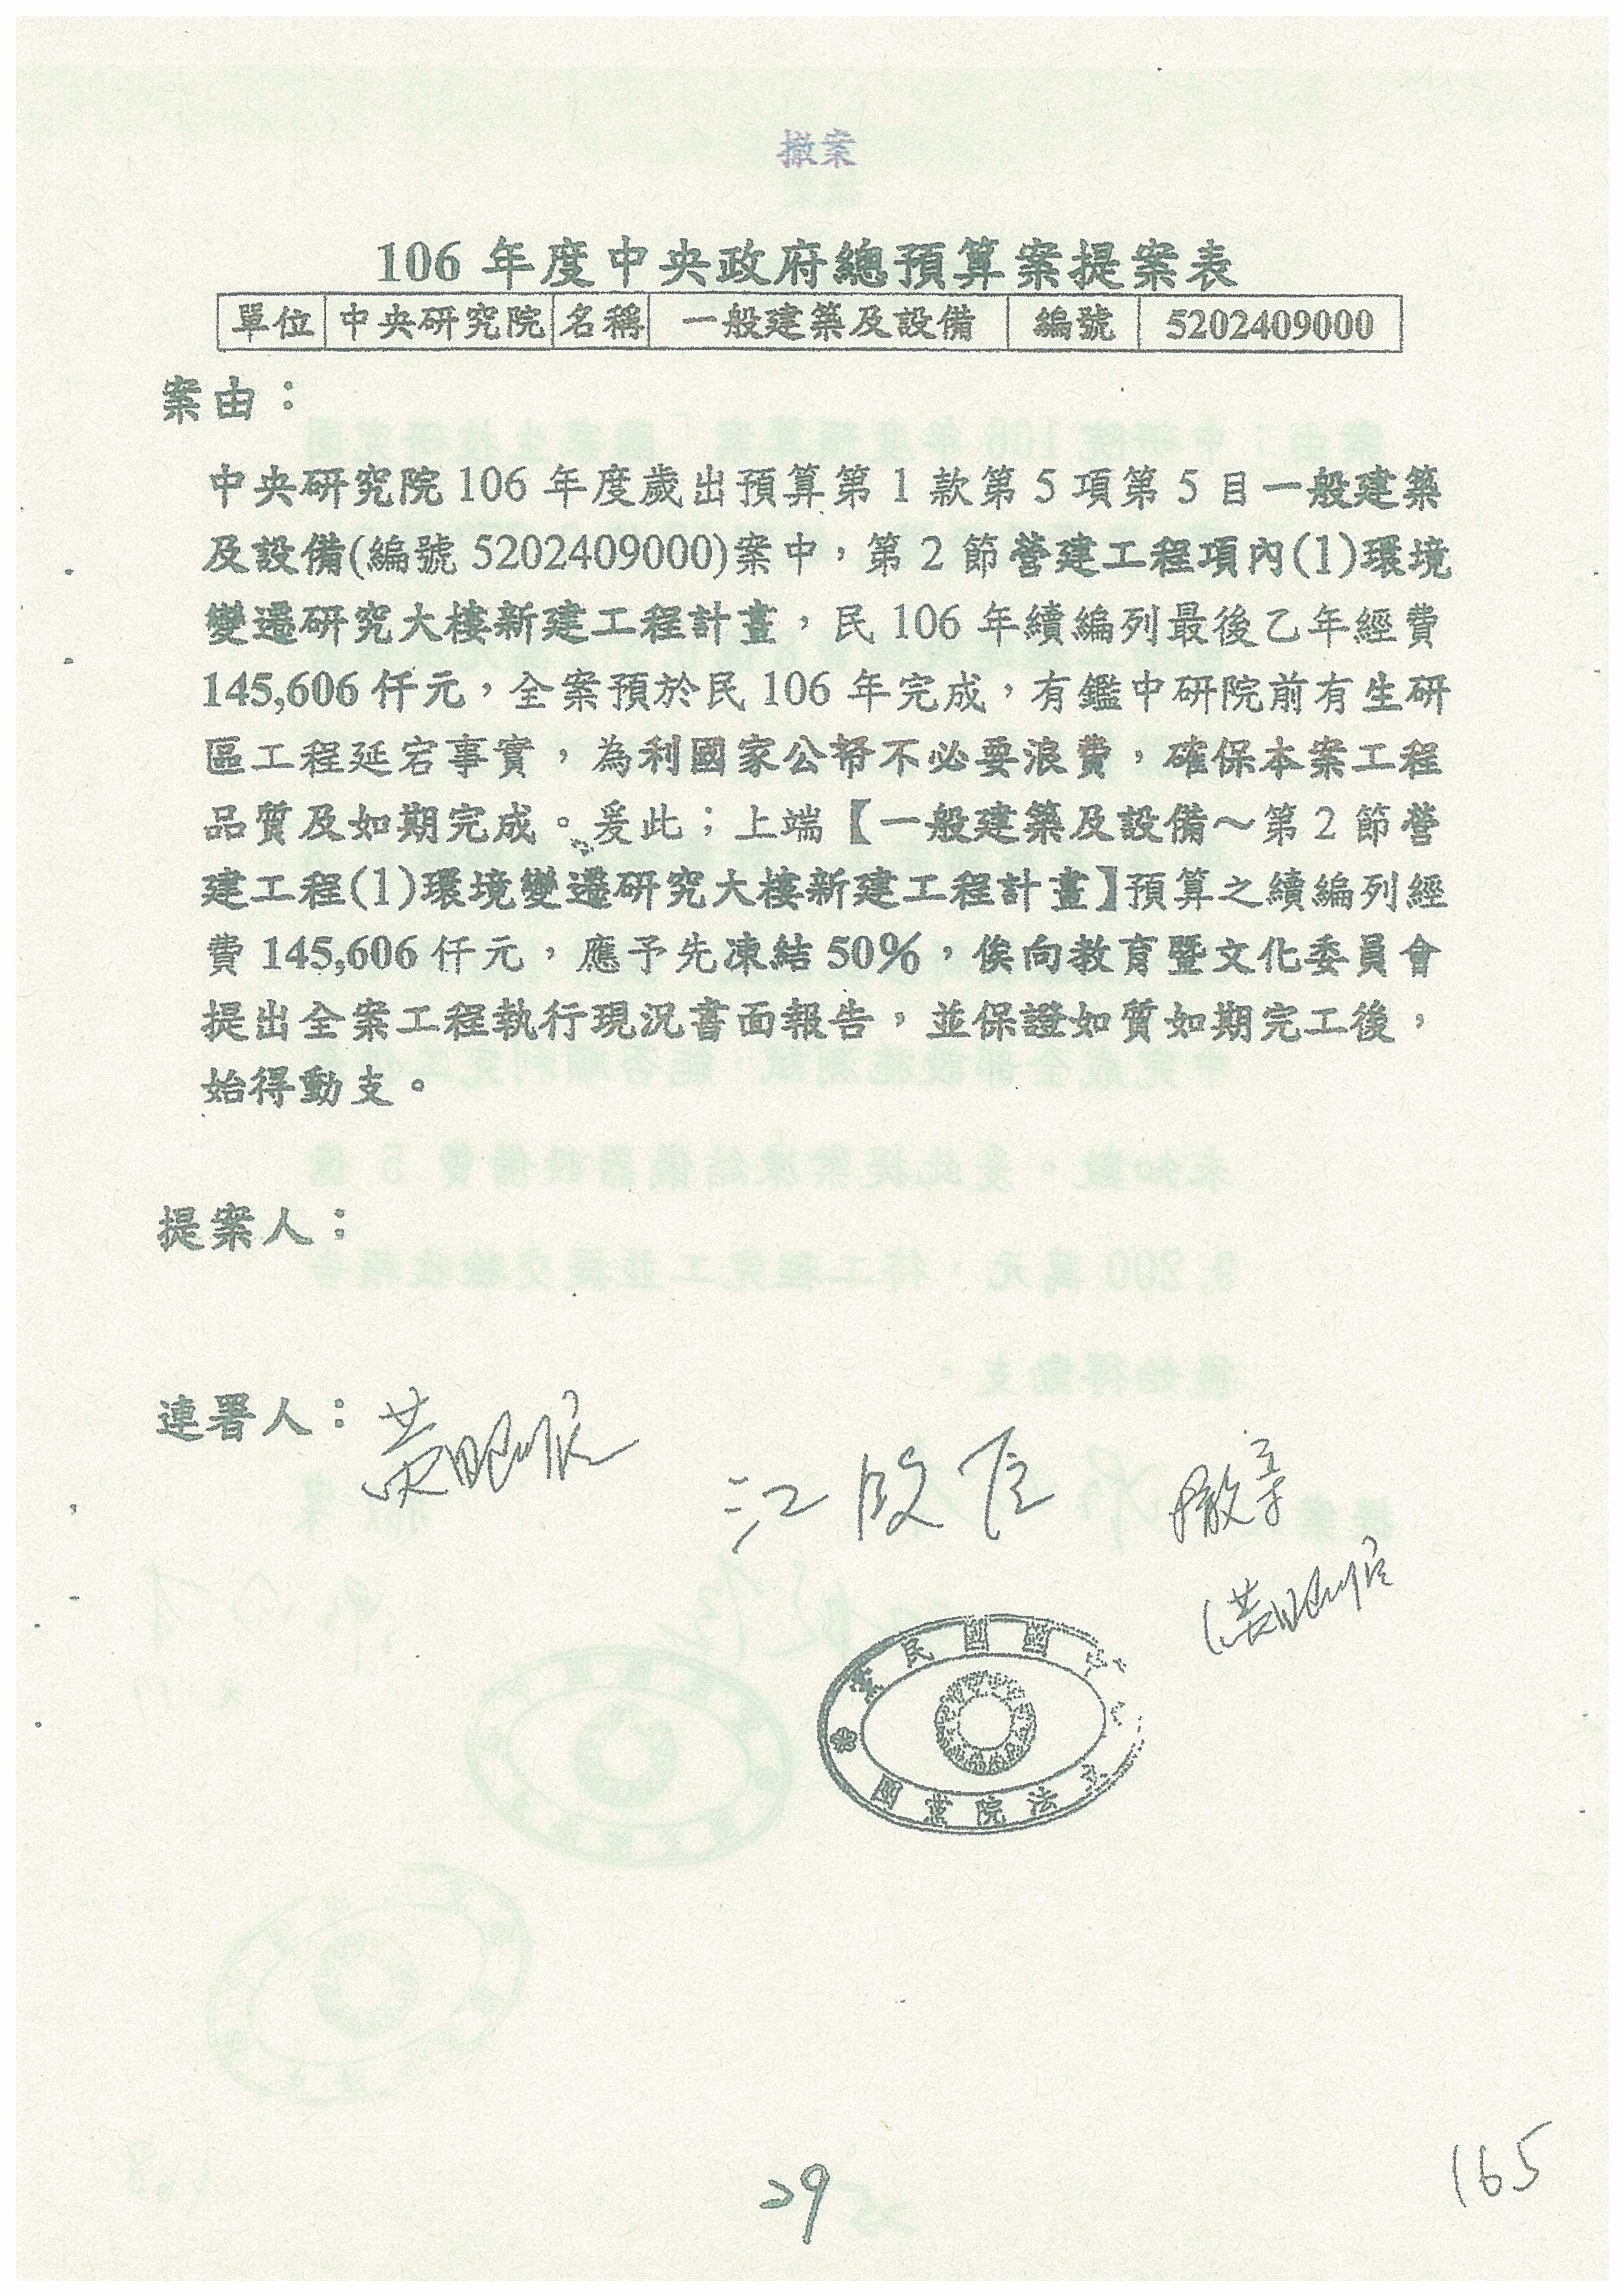 撤案
106 年度中央政府總預算案提案表
單位 中央研究院 名稱 一般建築及設備 編號 5202409000
案由：
中央研究院 106 年度歲出預算第 1 款第 5 項第 5 目一般建築
及設備(編號 5202409000)案中，第 2 節營建工程項內(1)環境
變遷研究大樓新建工程計畫，民 106 年續編列最後乙年經費
145,606 仟元，全案預於民 106 年完成，有鑑中研院前有生研
區工程延宕事實，為利國家公帑不必要浪費，確保本案工程
品質及如期完成。爰此；上端【一般建築及設備～第 2 節營
建工程(1)環境變遷研究大樓新建工程計畫】預算之續編列經
費 145,606 仟元，應予先凍結 50%，俟向教育暨文化委員會
提出全案工程執行現況書面報告，並保證如質如期完工後，
始得動支。
提案人：
連署人：黃昭順 江啟臣 撤案
黃昭順
中國國民黨
立法院黨團
29
165